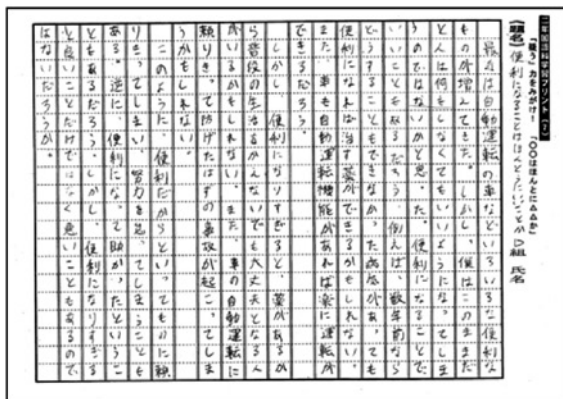 二年国語科学習プリント(7)
「疑う」力をみがけ! 「○○はほんとに△△か」
〈題名〉便利になることはほんとうにいいことか D組 氏名
最近は自動運転の車などいろいろな便利な
ものが増えてきた。しかし、僕はこのままだ
と人は何もしなくてもいいようになってしま
うのではないかと思った。便利になることで、
いいこともあるだろう。例えば、数年前なら
どうすることもできなかった病気があっても
便利になれば治す薬ができるかもしれない。
また、車も自動運転機能があれば楽に運転が
できるだろう。
しかし、便利になりすぎると、薬があるか
ら普段の生活をかえないでも大丈夫となる人
がいるかもしれない。また、車の自動運転に
頼りきって防げたはずの事故が起こってしま
うかもしれない。
このように、便利だからといってものに頼
りきってしまい、努力を怠ってしまうことも
ある。逆に、便利になって助かったというこ
ともあるだろう。しかし、便利になりすぎる
と良いことだけではなく悪いこともあるので
はないだろうか。